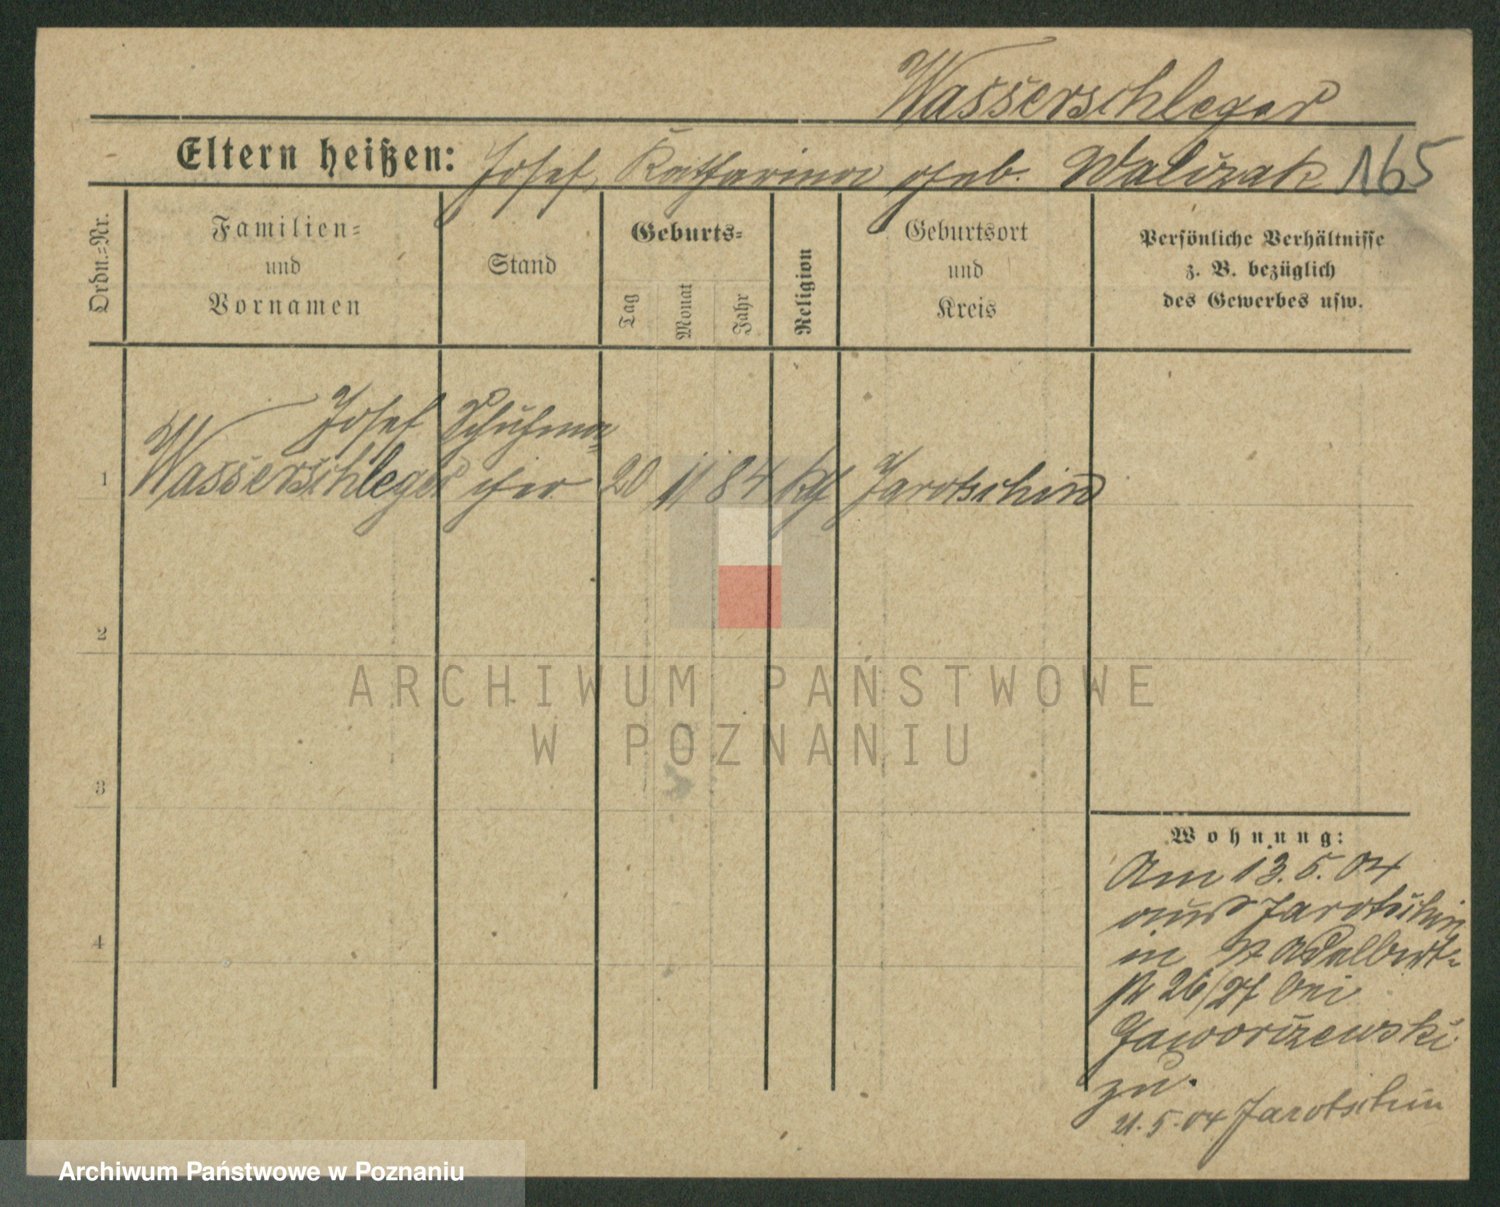 Wasserschleger
Eltern heißen: Josef, Katharina geb. Walizak 165
Ordn.-Nr.
Familien-
und
Vornamen
Stand
Geburts-
Tag
Monat
Jahr
Religion
Geburtsort
und
Kreis
Persönliche Verhältnisse
z. B. bezüglich
des Gewerbes usw.
Josef Schuhma-
1 Wasserschleger cher 20 11 84 kth Jarotschin
2
3
4
Wohnung:
Am 13.5.04
aus Jarotschin
in St Adalbert-
str 26/27 bei
Jaworizewski
zu.
21.5.04 Jarotschin
ARCHIWUM PAŃSTWOWE
W POZNANIU
Archiwum Państwowe w Poznaniu